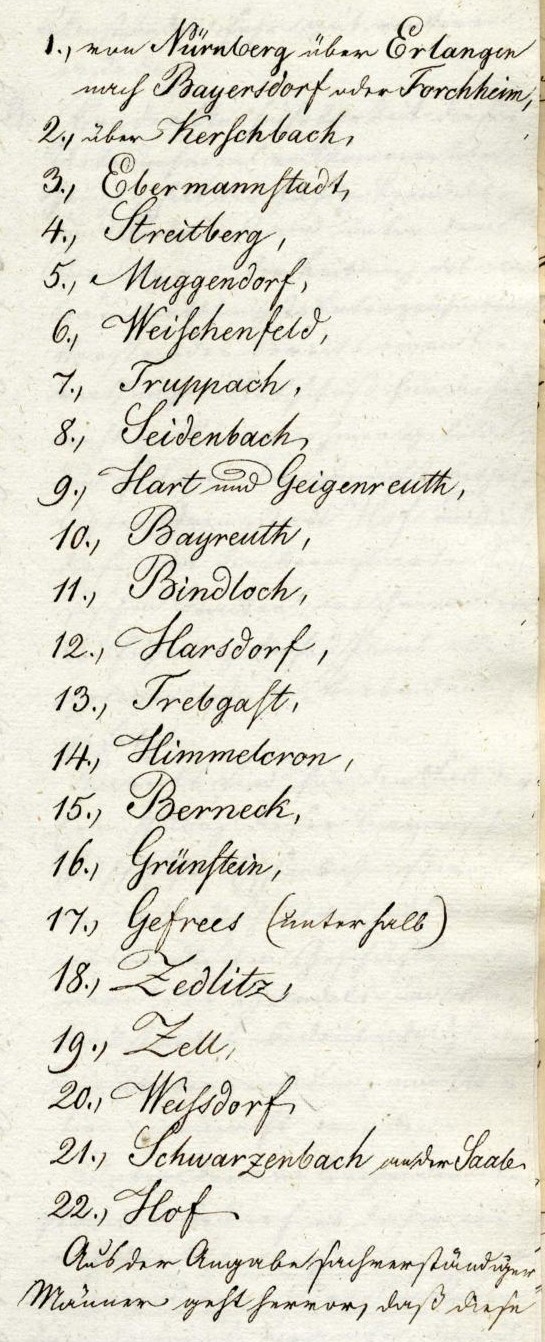 1., von Nürnberg über Erlangen
nach Bayersdorf oder Forchheim,
2., über Kerschbach,
3., Ebermannstadt,
4., Streitberg,
5., Muggendorf,
6., Weischenfeld,
7., Truppach,
8., Seidenbach,
9., Hart und Geigenreuth,
10., Bayreuth,
11., Bindloch,
12., Harsdorf,
13., Trebgast,
14., Himmelcron,
15., Berneck,
16., Grünstein,
17., Gefrees (unterhalb)
18., Zedlitz,
19., Zell,
20., Weissdorf,
21., Schwarzenbach an der Saale.
22., Hof.
Aus der Angabe sachverständiger
Männer geht hervor, daß diese